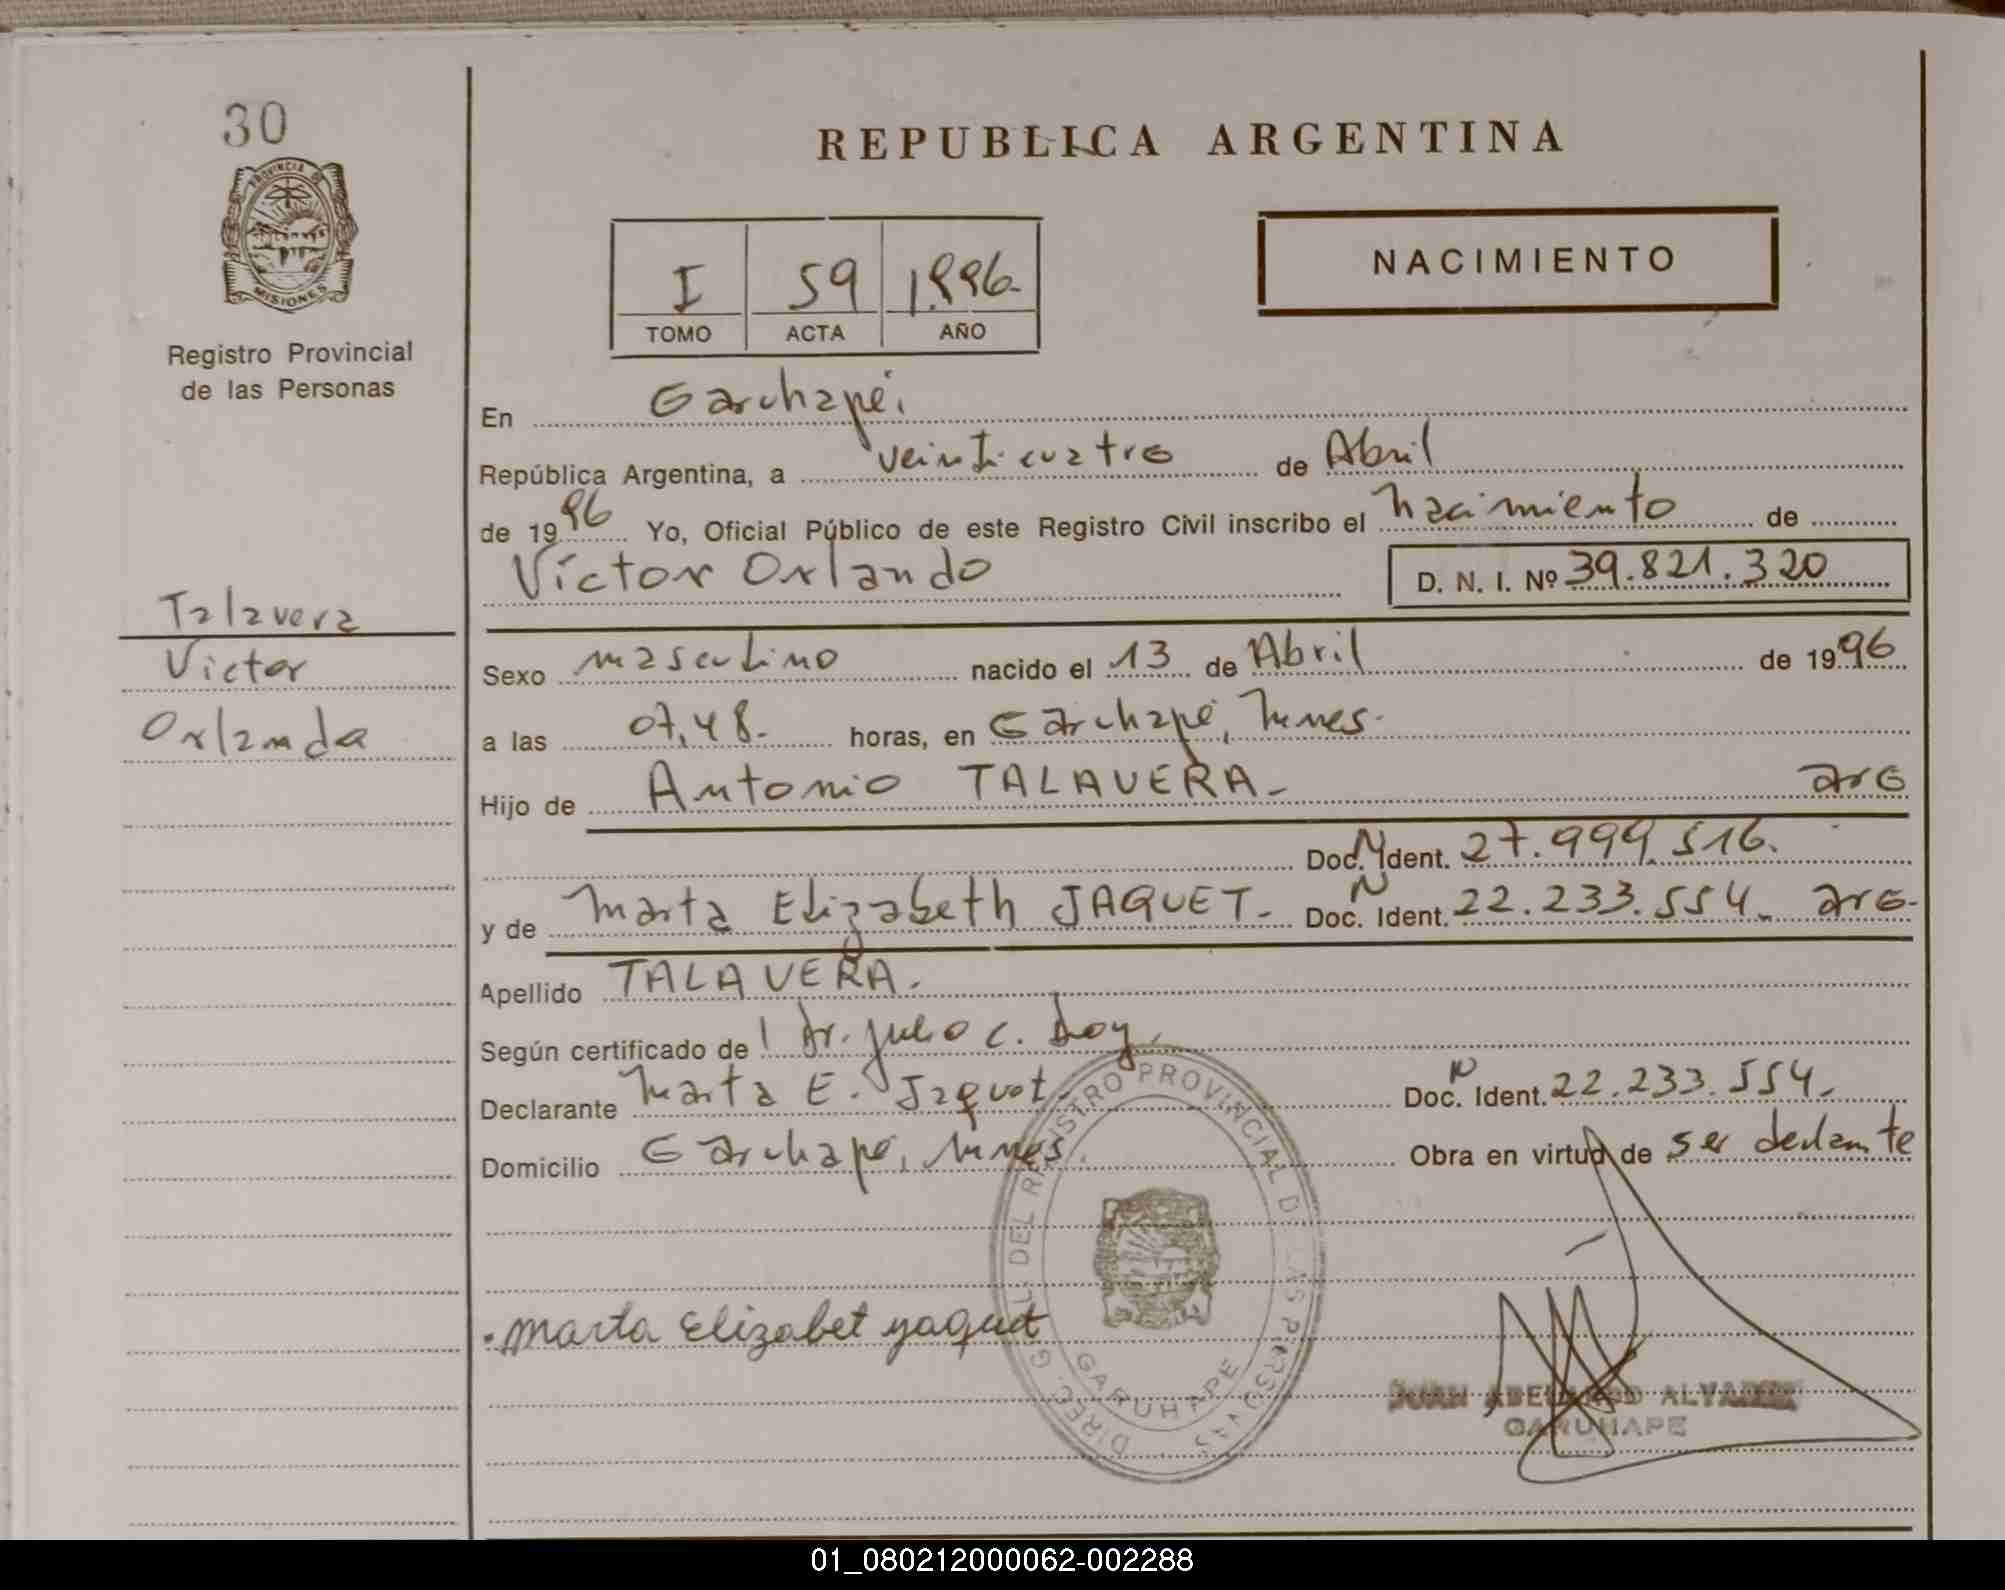 30
REPUBLICA ARGENTINA
PROVINCIA DE
MISIONES
Registro Provincial
de las Personas
I 59 1.996.
TOMO ACTA AÑO
NACIMIENTO
En Garuhapé.
República Argentina, a veinticuatro de Abril
de 1996 Yo, Oficial Público de este Registro Civil inscribo el nacimiento de
Víctor Orlando D. N. I. Nº 39.821.320
Talavera
Victor
Orlando
Sexo masculino nacido el 13 de Abril de 1996
a las 07,48. horas, en Garuhapé, Mnes.
Hijo de Antonio TALAVERA - arg
Doc. N Ident. 27.999.516.
y de Marta Elizabeth JAQUET - Doc. N Ident. 22.233.554. arg.
Apellido TALAVERA.
Según certificado de Dr. Julio C.
Declarante Marta E. Jaquet Doc. N Ident. 22.233.554.
Domicilio Garuhapé, Mnes. Obra en virtud de ser declante
DIREC. GRAL. DEL REGISTRO PROVINCIAL DE LAS PERSONAS
GARUHAPE
Marta Elizabet yaquet
JUAN ABELARDO ALVAREZ
GARUHAPE
01_080212000062-002288